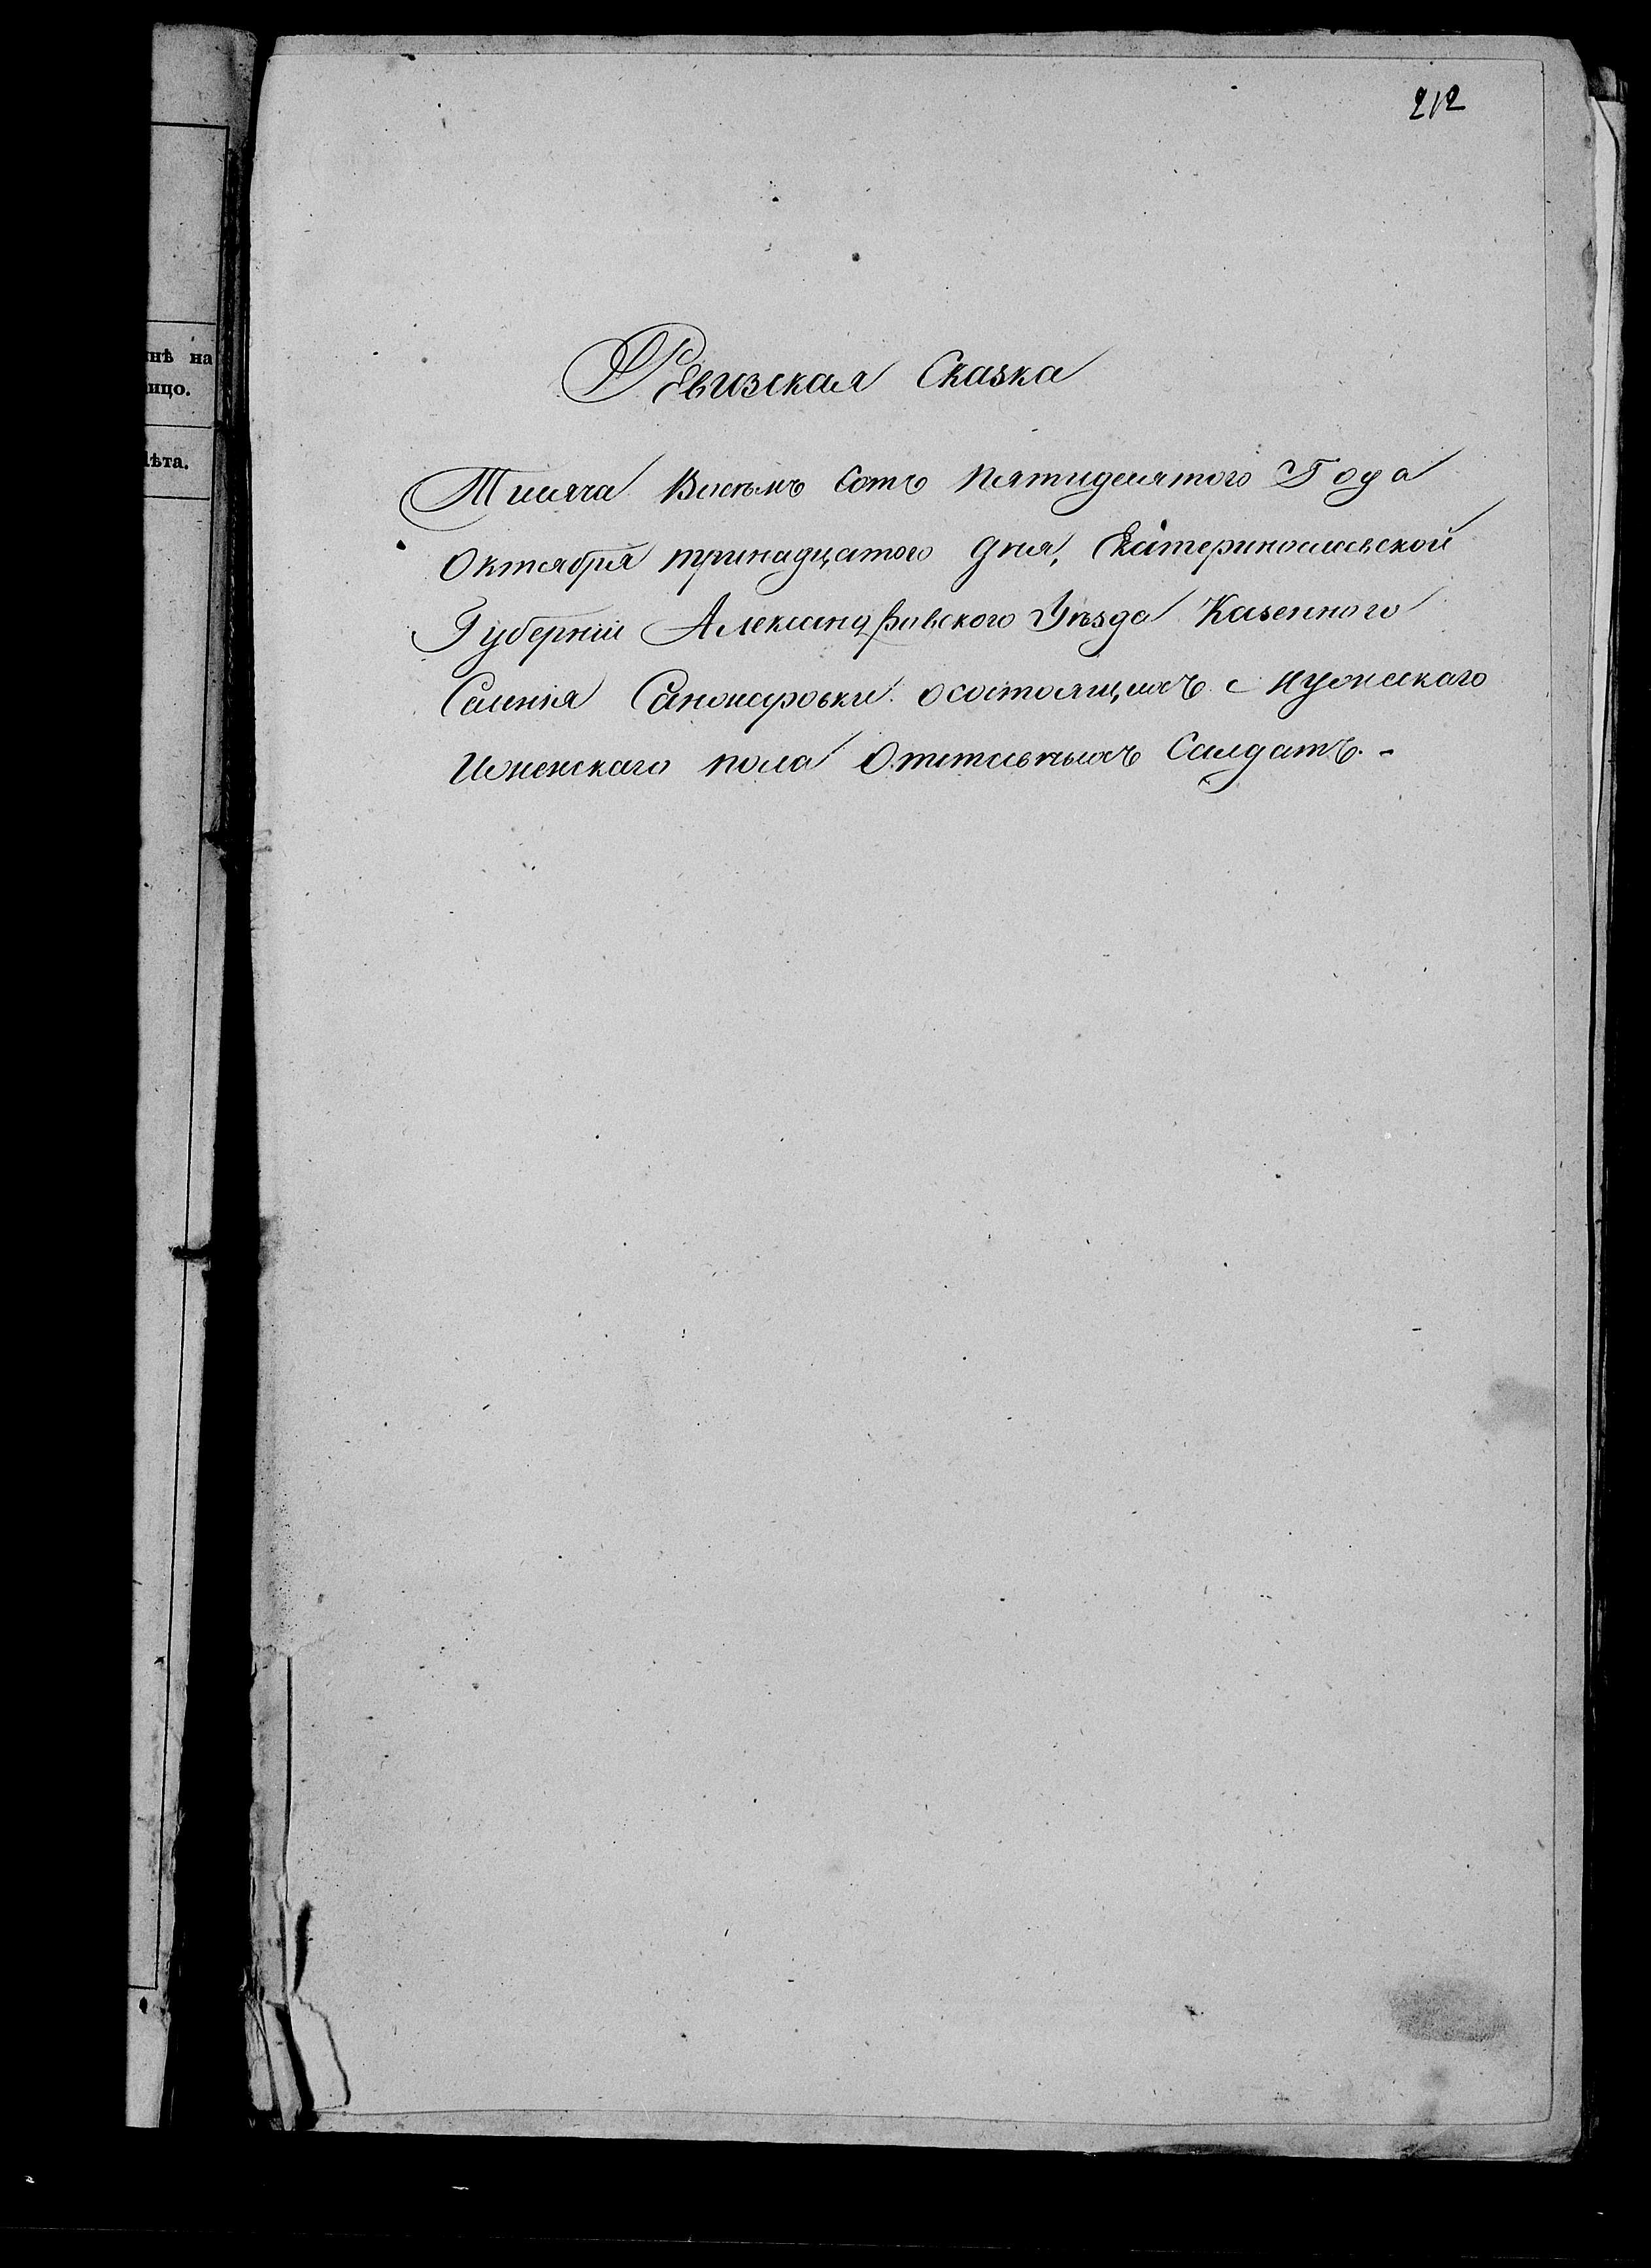 212
нѣ на
ицо.
лѣта.
Ревизская Сказка
Тисяча Восемъ Сотъ Пятидесятого Года
Октября тринадцатого дня, Екатеринославской
Губерніи Александровского Уѣзда Казенного
Селенія осостоящихъ Мужескаго
Женскаго пола Отставныхъ Салдатъ. -